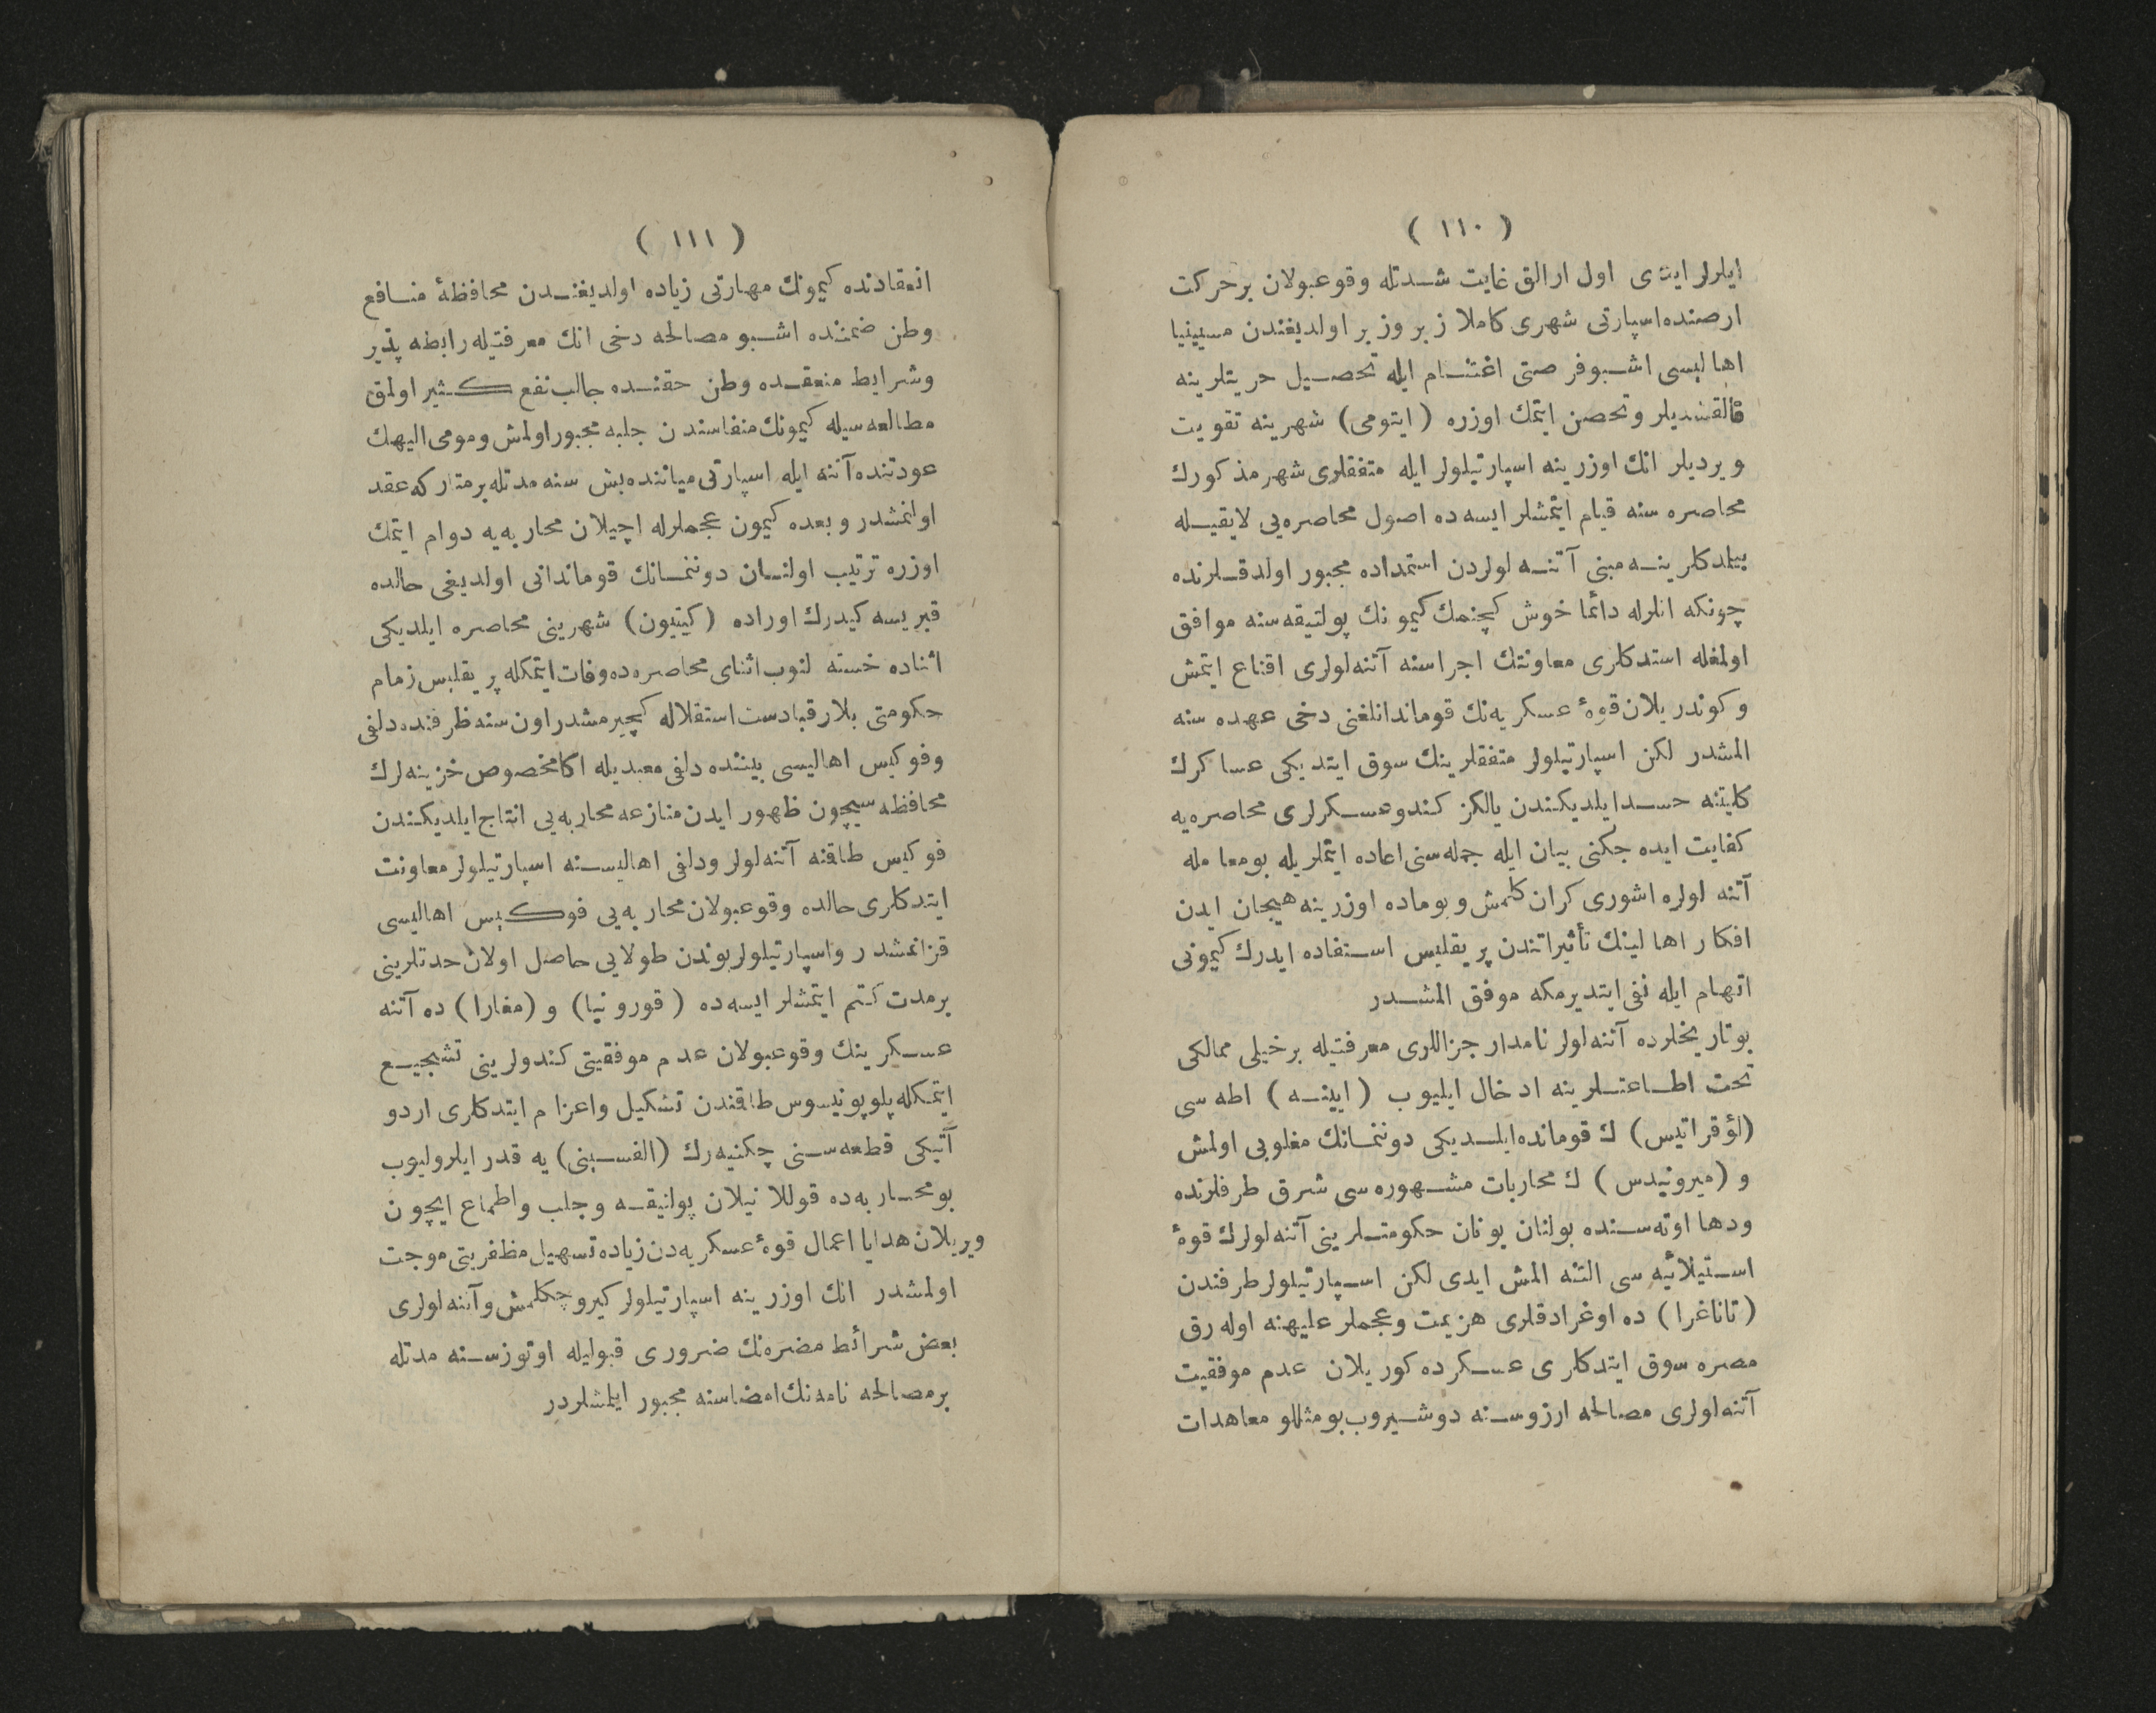 ( ١١٠ )
ايلرلر ايدى اول ارالق غايت شدتله وقوعبولان بر حركت
ارضنده اسپارتى شهرى كاملا زير وزبر اولديغندن مسينيا
اهاليسى اشبو فرصتى اغتنام ايله تحصيل حريتلرينه
قالقشديلر وتحصن ايتمك اوزره (ايتومى) شهرينه تقويت
ويرديلر انك اوزرينه اسپارتيلولر ايله متفقلرى شهر مذكورك
محاصره سنه قيام ايتمشلر ايسه ده اصول محاصره يى لايقيله
بيلدكلرينه مبنى آتنه لولردن استمداده مجبور اولدقلرنده
چونكه انلرله دائما خوش كچنمك كيمونك پولتيقه سنه موافق
اولمغله استدكلرى معاونتك اجراسنه آتنه لولرى اقناع ايتمش
وكوندريلان قوهٔ عسكريه نك قوماندانلغنى دخى عهده سنه
المشدر لكن اسپارتيلولر متفقلرينك سوق ايتديكى عساكرك
كليتنه حسد ايلديكندن يالكز كندو عسكرلرى محاصره يه
كفايت ايده جكنى بيان ايله جمله سنى اعاده ايتملريله بومعامله
آتنه لولره اشورى كران كلمش و بوماده اوزرينه هيجان ايدن
افكار اهالينك تأثيراتندن پريقليس استفاده ايدرك كيمونى
اتهام ايله نفى ايتديرمكه موفق المشدر
بوتاريخلرده آتنه لولر نامدار جنراللرى معرفتيله برخيلى ممالكى
تحت اطاعتلرينه ادخال ايليوب (ايينه) اطه سى
(لؤقراتيس) ك قومانده ايلديكى دوننمانك مغلوبى اولمش
و (ميرونيدس) ك محاربات مشهوره سى شرق طرفلرنده
ودها اوته سنده بولنان يونان حكومتلرينى آتنه لولرك قوهٔ
استيلائيه سى التنه المش ايدى لكن اسپارتيلولر طرفندن
(تاناغرا) ده اوغرادقلرى هزيمت وعجملر عليهنه اوله رق
مصره سوق ايتدكلرى عسكرده كوريلان عدم موفقيت
آتنه لولرى مصالحه ارزوسنه دوشيروب بومثللو معاهدات
( ١١١ )
انعقادنده كيمونك مهارتى زياده اولديغندن محافظهٔ منافع
وطن ضمننده اشبو مصالحه دخى انك معرفتيله رابطه پذير
وشرايط منعقده وطن حقنده جالب نفع كثير اولمق
مطالعه سيله كيمونك منفاسندن جلبه مجبور اولمش ومومى اليهك
عودتنده آتنه ايله اسپارتى مياننده بش سنه مدتله برمتاركه عقد
اولنمشدر وبعده كيمون عجملرله اچيلان محاربه يه دوام ايتمك
اوزره ترتيب اولنان دوننمانك قوماندانى اولديغى حالده
قبريسه كيدرك اوراده (كيتيون) شهرينى محاصره ايلديكى
اثناده خسته لنوب اثناى محاصره ده وفات ايتمكله پريقليس زمام
حكومتى بلارقبا دست استقلاله كچيرمشدر اون سنه ظرفنده دلفى
وفوكيس اهاليسى بيننده دلفى معبديله اكا مخصوص خزينه لرك
محافظه سيچون ظهور ايدن منازعه محاربه يى انتاج ايلديكندن
فوكيس طاقنه آتنه لولر ودلفى اهاليسنه اسپارتيلولر معاونت
ايتدكلرى حالده وقوعبولان محاربه يى فوكيس اهاليسى
قزانمشدر واسپارتيلولر بوندن طولايى حاصل اولان حدتلرينى
برمدت كتم ايتمشلر ايسه ده (قورونيا) و (مغارا) ده آتنه
عسكرينك وقوعبولان عدم موفقيتى كندولرينى تشجيع
ايتمكله پلوپونيسوس طاقندن تشكيل واعزام ايتدكلرى اردو
آتيكى قطعه سنى چكنيه رك (الفسينى) يه قدر ايلروليوب
بو محاربه ده قوللانيلان پولتيقه وجلب واطماع ايچون
ويريلان هدايا اعمال قوهٔ عسكريه دن زياده تسهيل مظفريتى موجب
اولمشدر انك اوزرينه اسپارتيلولر كيرو چكلمش وآتنه لولرى
بعض شرائط مضره نك ضرورى قبوليله اوتوز سنه مدتله
برمصالحه نامه نك امضاسنه مجبور ايلمشلردر